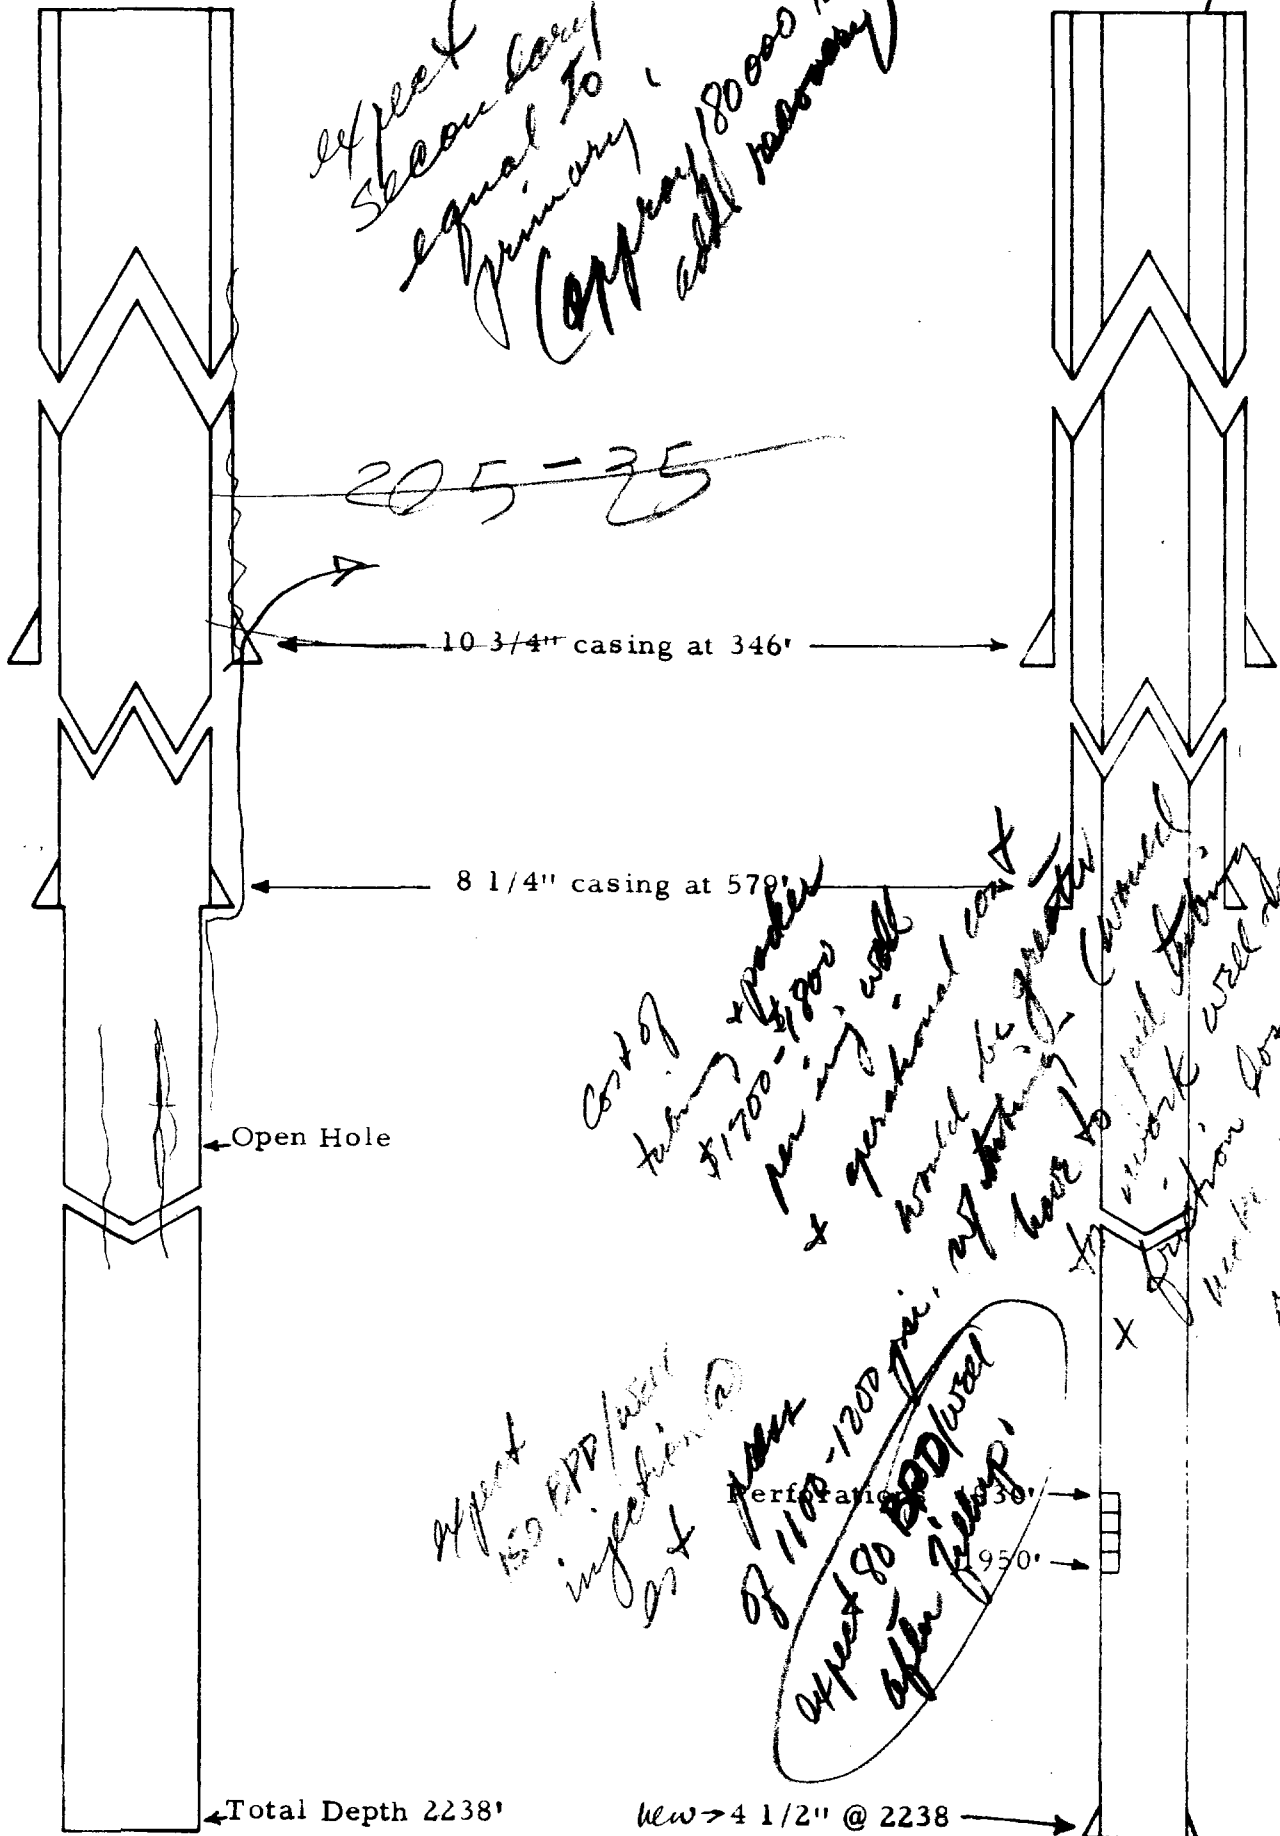 expect
secondary
equal to
primary
(approx 180000
addl recovery)
205-35
10 3/4" casing at 346'
8 1/4" casing at 579'
Cost of
tubing + packer
$1700-$1800
per inj well
+ operational cost
would be greater
w/ tubing (would
have to pull tubing
to work well
friction loss
Open Hole
expect
150 BPD/well
injection @
est press
of 1100-1200 psi.
expect 80 BPD/well
after fillup.
Perforations 1930'
1950'
Total Depth 2238'
new → 4 1/2" @ 2238
x